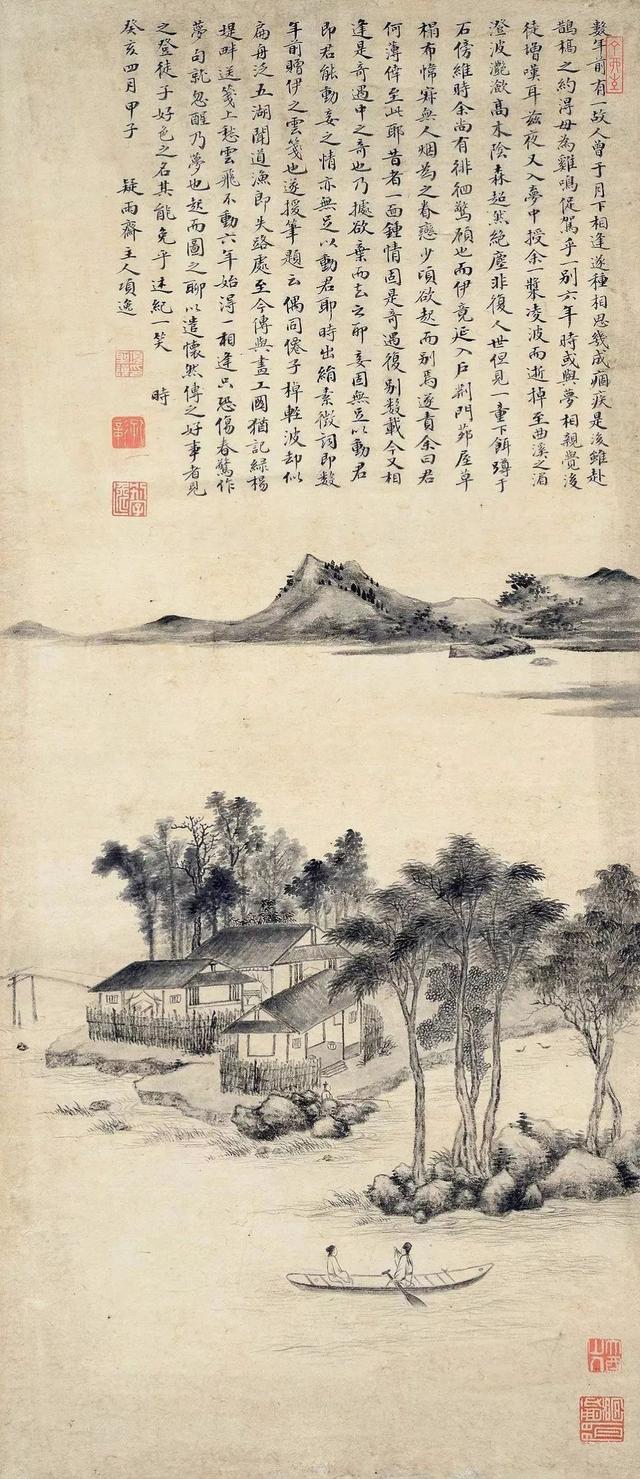 數年前有一故人曾于月下相逢遂種相思幾成痼疾是後雖赴
鵲橋之約得毋為雞鳴促駕乎一別六年時或與夢相親覺後
徒增嘆耳茲夜又入夢中授余一槳凌波而逝掉至曲溪之湄
澄波灔漵高木陰森超然絕塵非復人世但見一童下餌蹲于
石傍維時余尚有徘徊驚顧也而伊竟延入戶荊門茆屋草
榻布幃寂無人烟為之眷戀少頃欲起而別焉遂責余曰君
何薄倖至此耶昔者一面鍾情固是奇遇復別數載今又相
逢是奇遇中之奇也乃據欲棄而去之耶妾固無足以動君
即君能動妾之情亦無足以動君耶時出絹素徵詞即數
年前贈伊之雲箋也遂援筆題云偶同僊子棹輕波却似
扁舟泛五湖聞道漁郎失路處至今傳與畫工圖猶記綠楊
堤畔送箋上愁雲飛不動六年始得一相逢只恐傷春驚作
夢句就忽醒乃夢也起而圖之聊以遣懷然傳之好事者見
之登徒子好色之名其能免乎述紀一笑 時
癸亥四月甲子 疑雨齋主人項逸